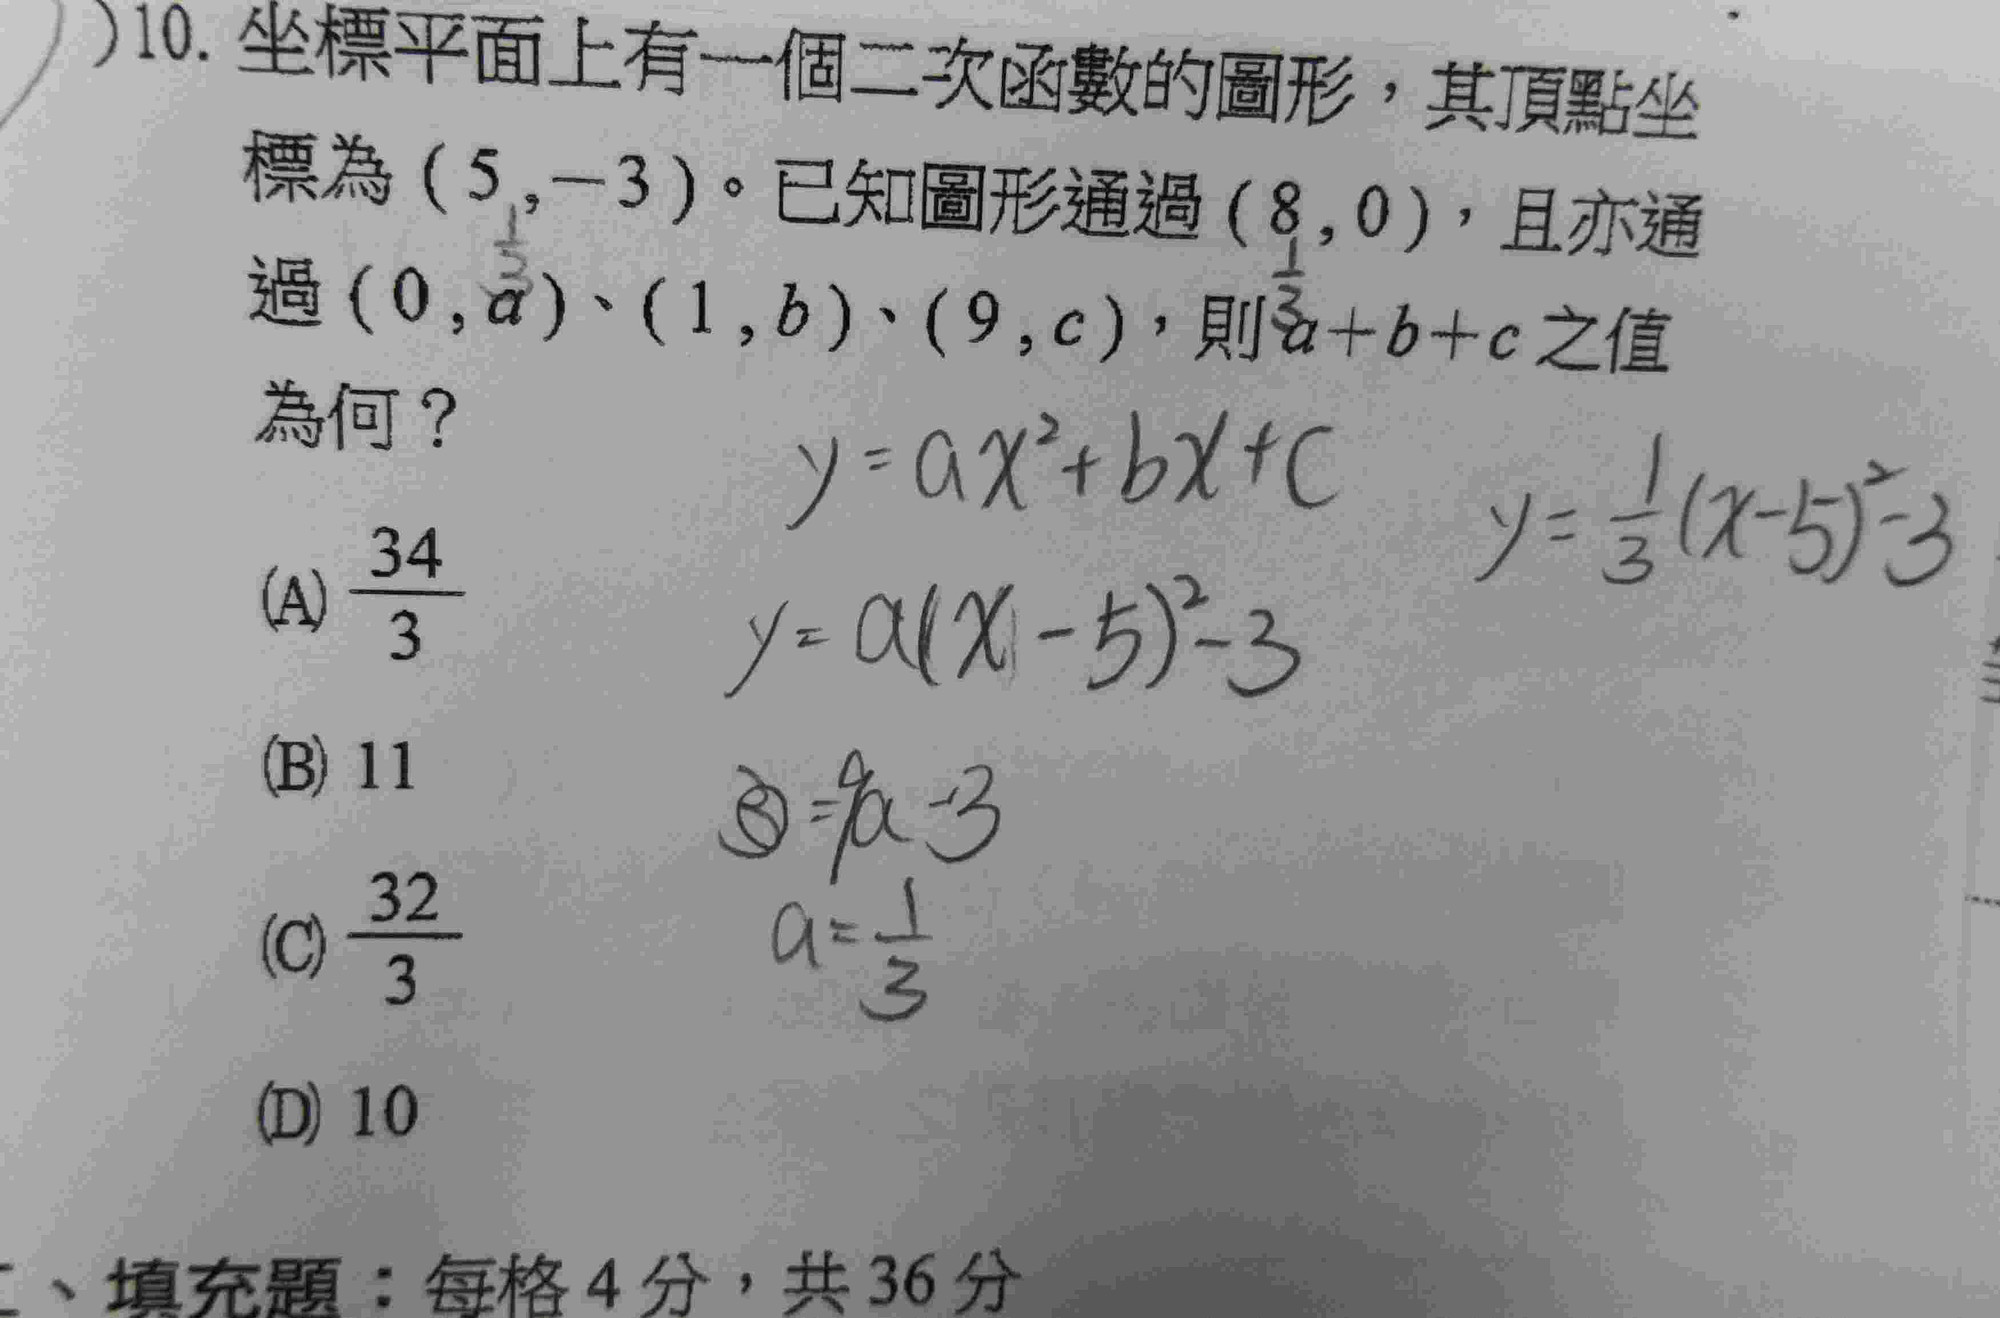 )10. 坐標平面上有一個二次函數的圖形，其頂點坐
標為(5,-3)。已知圖形通過(8,0)，且亦通
1/3
1/3
過(0,a)、(1,b)、(9,c)，則a+b+c之值
為何？
y=ax²+bx+c
y=1/3(x-5)²-3
(A) 34/3
y=a(x-5)²-3
(B) 11
=9a-3
(C) 32/3
a=1/3
(D) 10
、填充題：每格4分，共36分